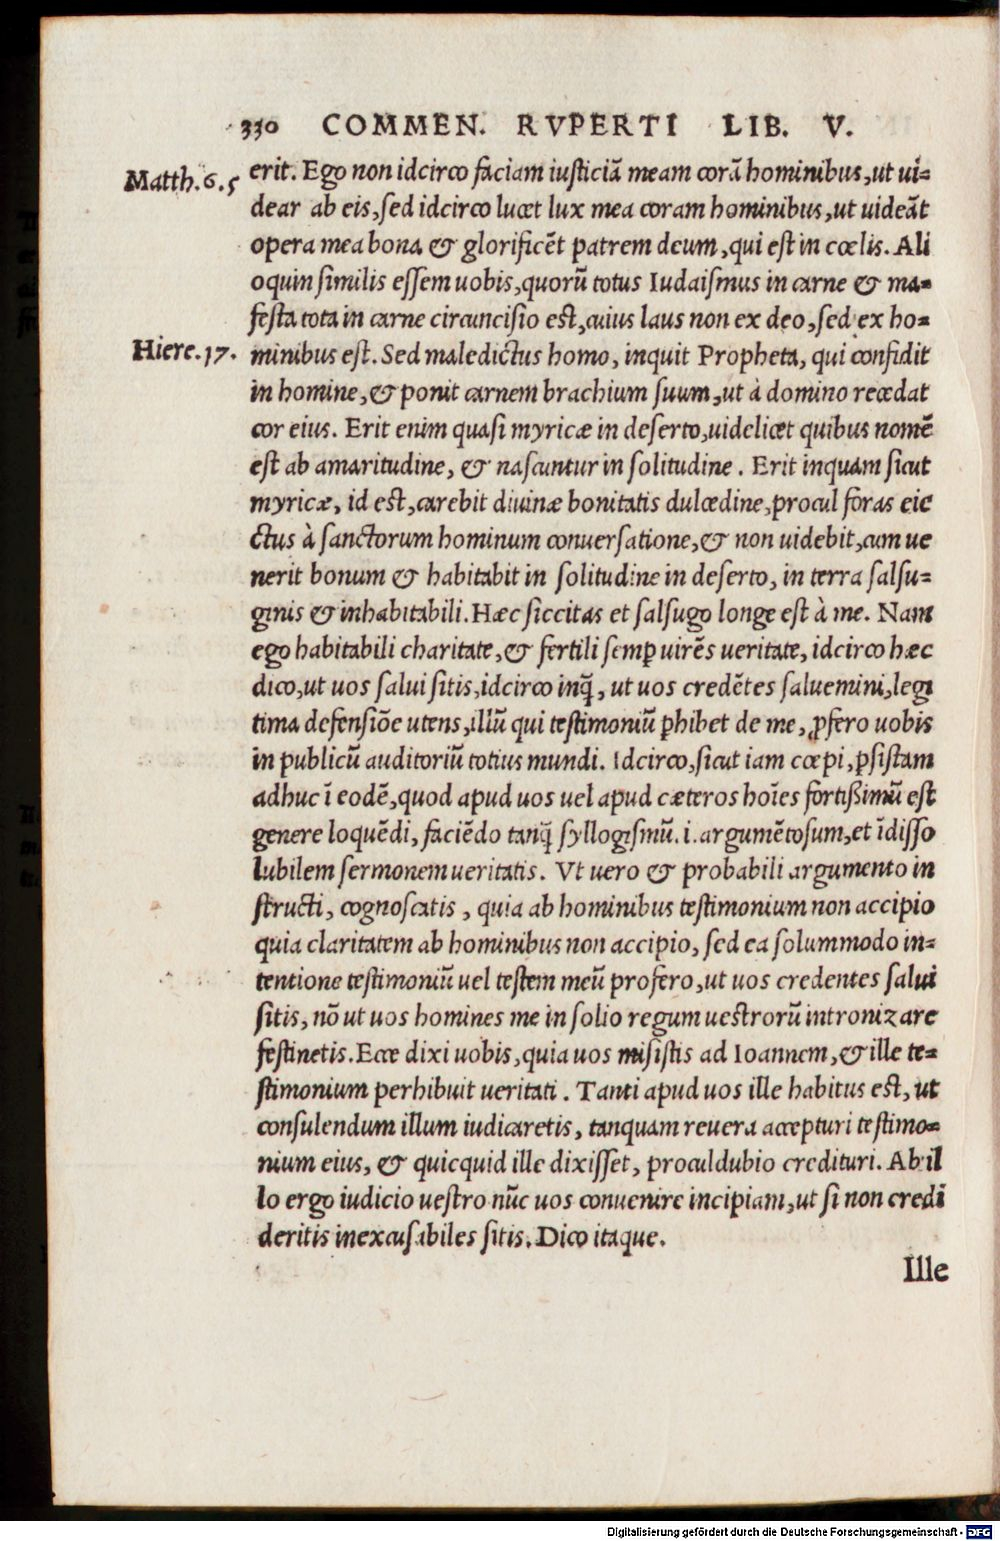 330 COMMEN. RVPERTI LIB. V.
Matth.6.5
erit. Ego non idcirco faciam iusticiā meam corā hominibus, ut ui-
dear ab eis, sed idcirco lucet lux mea coram hominibus, ut uideāt
opera mea bona & glorificēt patrem deum, qui est in cœlis. Ali
oquin similis essem uobis, quorū totus Iudaismus in carne & ma-
festa tota in carne circuncisio est, cuius laus non ex deo, sed ex ho-
Hiere.17.
minibus est. Sed maledictus homo, inquit Propheta, qui confidit
in homine, & ponit carnem brachium suum, ut à domino recedat
cor eius. Erit enim quasi myricæ in deserto, uidelicet quibus nomē
est ab amaritudine, & nascuntur in solitudine. Erit inquam sicut
myricæ, id est, carebit diuinæ bonitatis dulcedine, procul foras eie
ctus à sanctorum hominum conuersatione, & non uidebit, cum ue
nerit bonum & habitabit in solitudine in deserto, in terra salsu-
ginis & inhabitabili. Hæc siccitas et salsugo longe est à me. Nam
ego habitabili charitate, & fertili semꝑ uirēs ueritate, idcirco hæc
dico, ut uos salui sitis, idcirco inq̄, ut uos credētes saluemini, legi
tima defensiōe utens, illū qui testimoniū ꝑhibet de me, ꝓfero uobis
in publicū auditoriū totius mundi. Idcirco, sicut iam cœpi, ꝑsistam
adhuc ī eodē, quod apud uos uel apud cæteros hoīes fortißimū est
genere loquēdi, faciēdo tanq̄ syllogismū. i. argumētosum, et īdisso
lubilem sermonem ueritatis. Vt uero & probabili argumento in
structi, cognoscatis, quia ab hominibus testimonium non accipio
quia claritatem ab hominibus non accipio, sed ea solummodo in-
tentione testimoniū uel testem meū profero, ut uos credentes salui
sitis, nō ut uos homines me in solio regum uestrorū intronizare
festinetis. Ecce dixi uobis, quia uos misistis ad Ioannem, & ille te-
stimonium perhibuit ueritati. Tanti apud uos ille habitus est, ut
consulendum illum iudicaretis, tanquam reuera accepturi testimo-
nium eius, & quicquid ille dixisset, proculdubio credituri. Ab il
lo ergo iudicio uestro nūc uos conuenire incipiam, ut si non credi
deritis inexcusabiles sitis. Dico itaque.
Ille
Digitalisierung gefördert durch die Deutsche Forschungsgemeinschaft - DFG